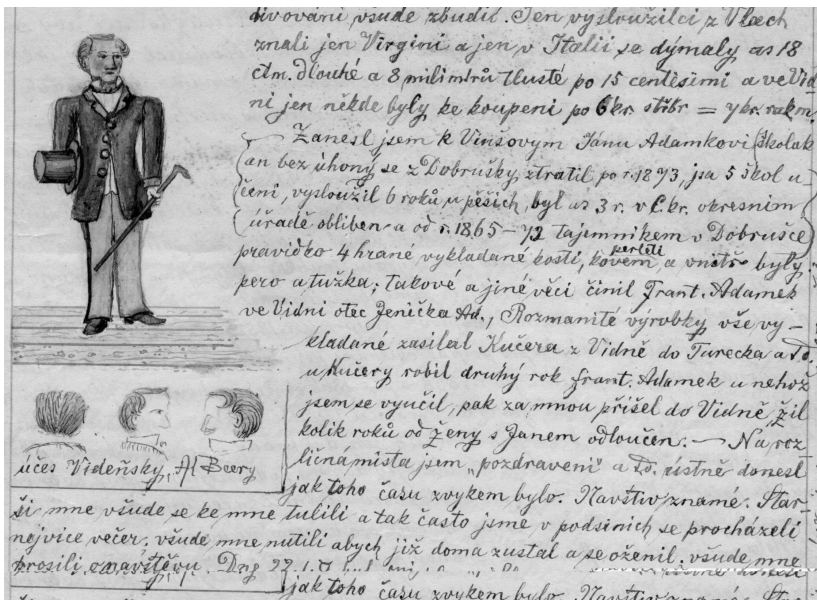 divování všude zbudil. Jen vysloužilci z Vlach
znali jen Virgini a jen v Italii se dýmaly as 18
ctm. dlouhé a 8 milimirů tlusté po 15 centisimi a ve Víd
ni jen někde byly ke koupeni po 6 kr. stříbr = 7 kr. rak m.
Zanesl jsem k Vinšovym Jánu Adamkovi (školak
an bez úhony se z Dobrušky ztratil po r. 1873, jsa 5 škol u-
čeni, vysloužil 6 roků u pěších, byl as 3 r. v C. kr. okresnim
úřadě obliben a od r. 1865–72 tajemnikem v Dobrušce)
pravidko 4 hrané vykladané kosti, kovem perletí a vnitř byly
pero a tužka; takové a jiné věci činil Frant. Adamek
ve Vidni otec Jenička Ad., Rozmanité výrobky vše vy-
kladané zasilal Kučera z Vidně do Turecka a
u Kučery robil druhý rok Frant. Adamek u nehož
jsem se vyučil, pak za mnou přišel do Vidně, žil
kolik roků od ženy s Janem odloučen. — Na roz
ličná mista jsem „pozdraveni" a ústně donesl
jak toho času zvykem bylo. Navštiv známé. Star-
účes Videňsky, Al Beery
ši mne všude se ke mne tulili a tak často jsme v podsinich se procházeli
nejvice večer. všude mne nutili abych již doma zustal a se oženil. všude mne
prosili o navštěvu.
jak toho času zvykem bylo. Navštiv známé. Sta